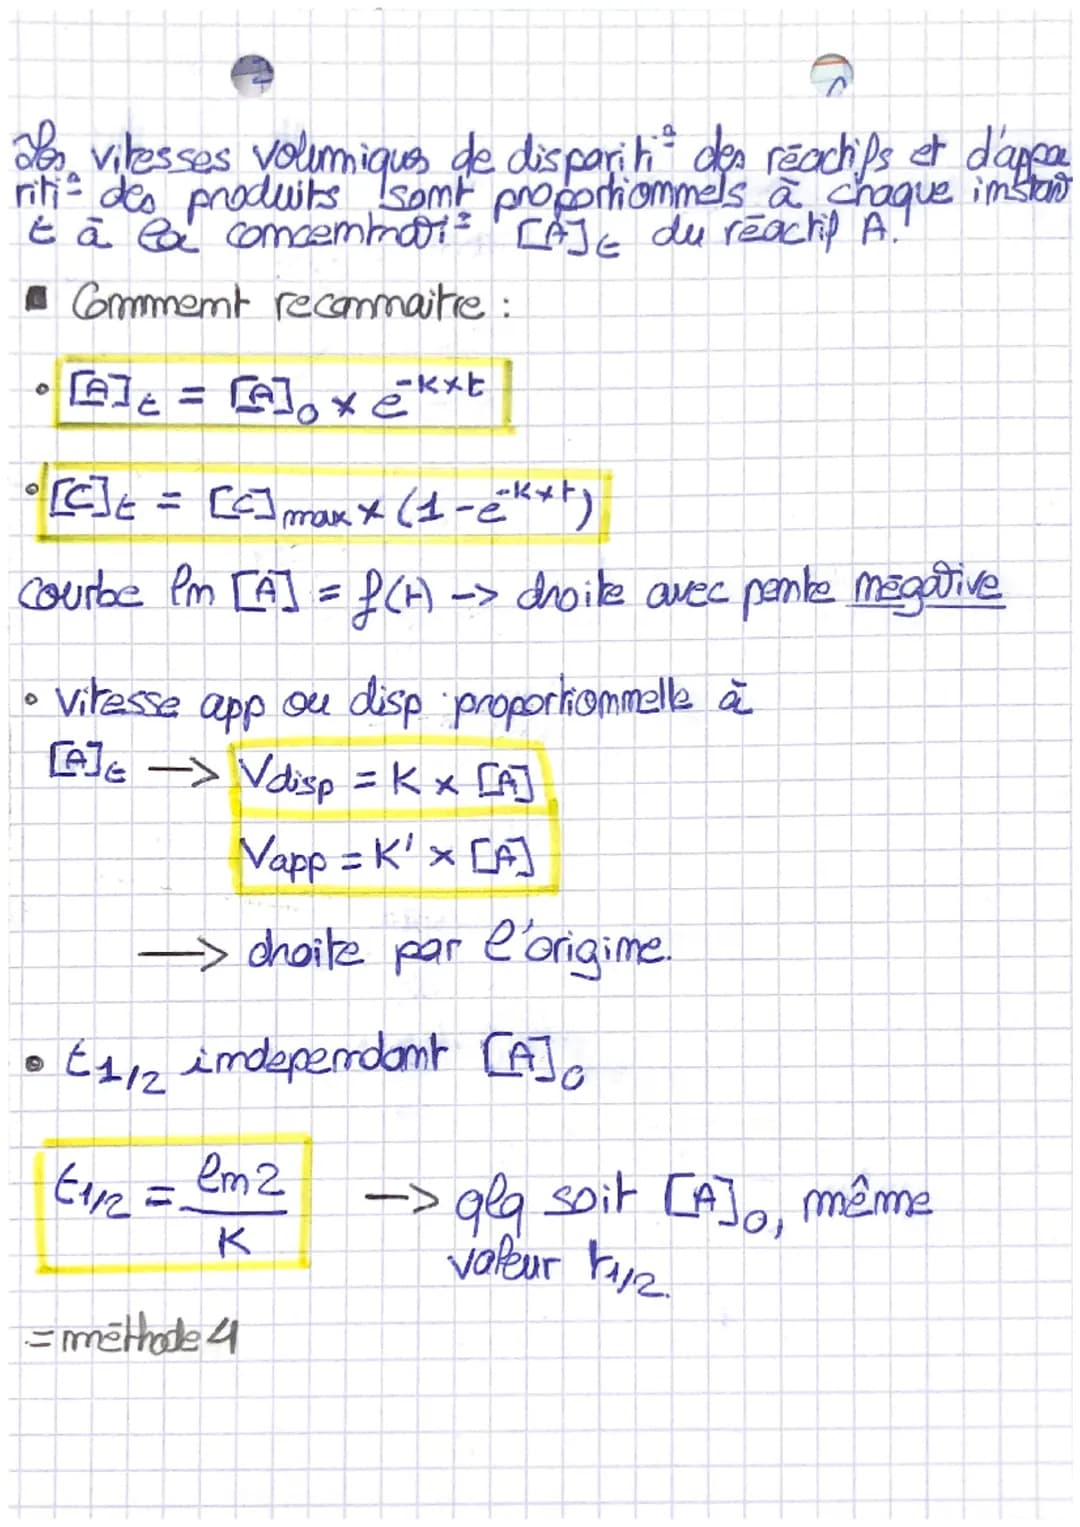 Les vitesses volumiques de dispariti° des réactifs et d'appa
riti° des produits sont proportionnels à chaque instant
t à la concentrati° [A]t du réactif A.
■ Comment reconnaitre :
• [A]t = [A]0 × e^-K×t
• [C]t = [C]max × (1-e^-K×t)
courbe ln [A] = f(t) -> droite avec pente négative
• vitesse app ou disp proportionnelle à
[A]t -> Vdisp = K × [A]
Vapp = K' × [A]
-> droite par l'origine.
• t1/2 independant [A]0
t1/2 = ln2/K -> qlq soit [A]0, même
valeur t1/2.
= méthode 4